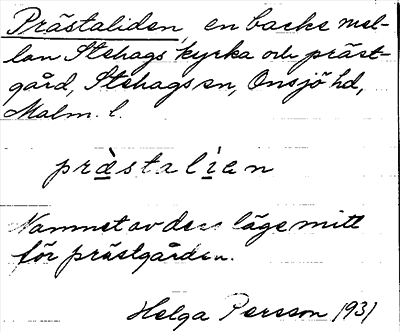 Prästaliden, en backe mel-
lan Stehags kyrka och präst-
gård, Stehags sn, Onsjö hd,
Malm. l.
præ̀stalien
Namnet av dess läge mitt
för prästgården.
Helga Persson 1931